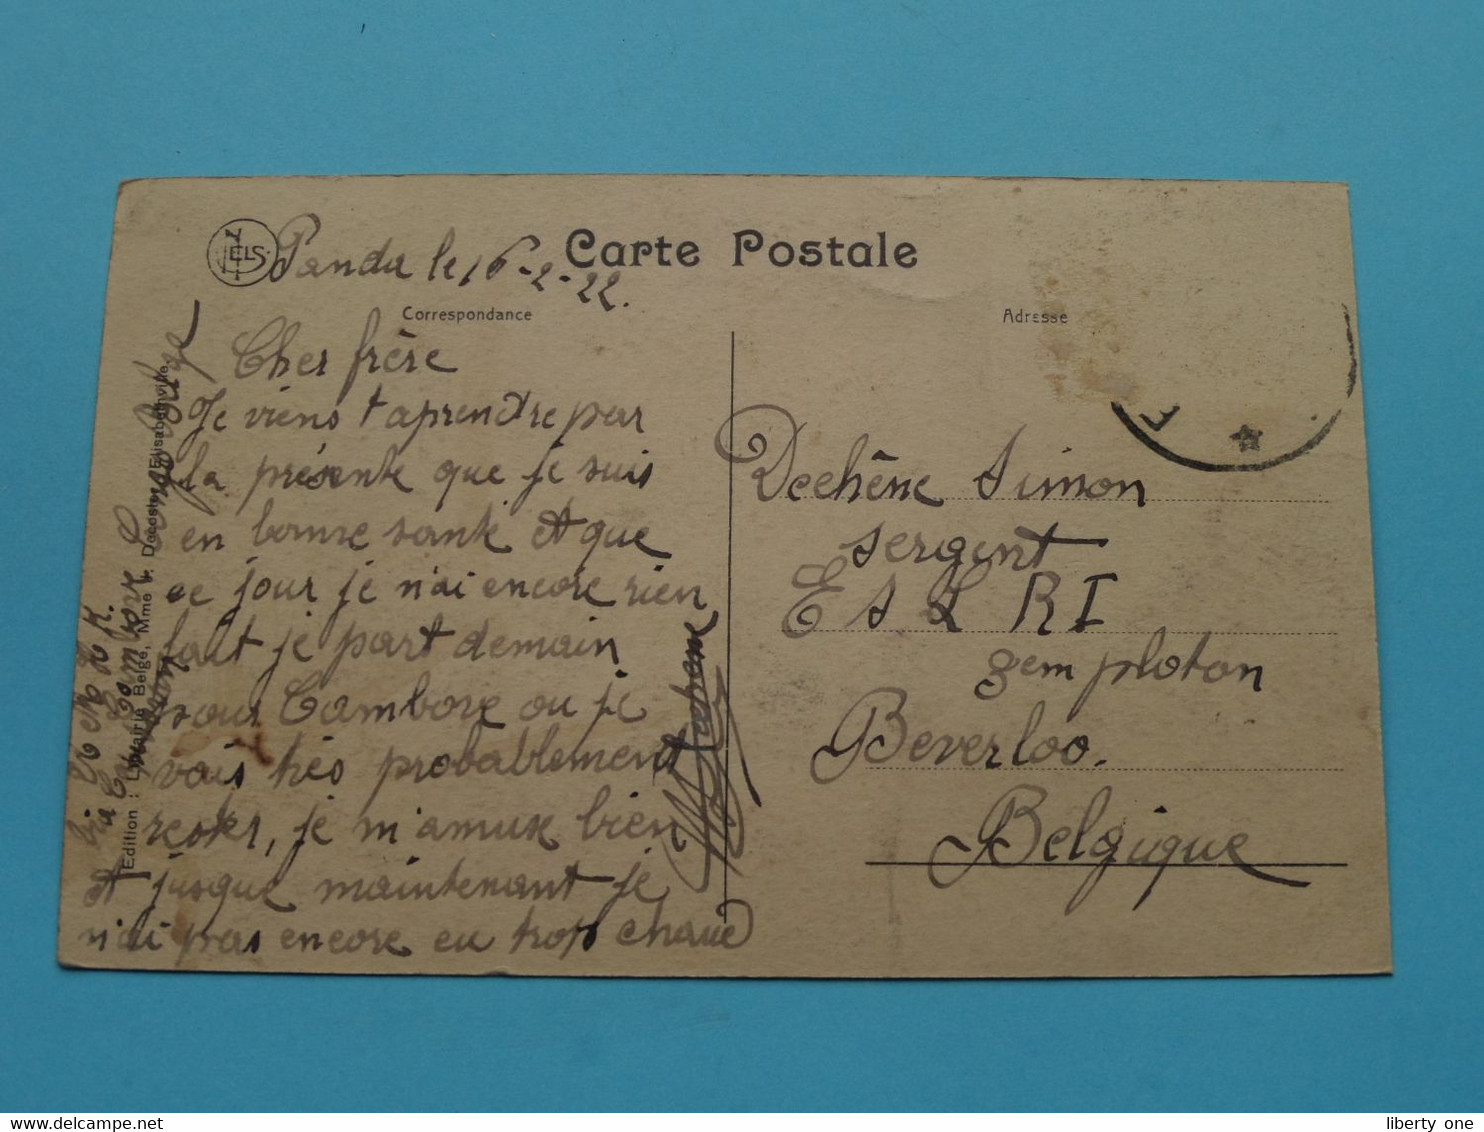 NELS
Carte Postale
Correspondance
Adresse
Panda le 16-2-22.
Cher frère
Je viens t'aprendre par
la présente que je suis
en bonne santé et que
ce jour je n'ai encore rien
fait je part demain
pour Cambove ou je
vais très probablement
rester, je m'amuse bien
et jusque maintenant je
n'ai pas encore eu trop chaud
Cambove Congo Belge
Edition : Librairie Belge, Mme
Elisabethville
Dechêne Simon
sergent
E S L R I
3em ploton
Beverloo.
Belgique
liberty one